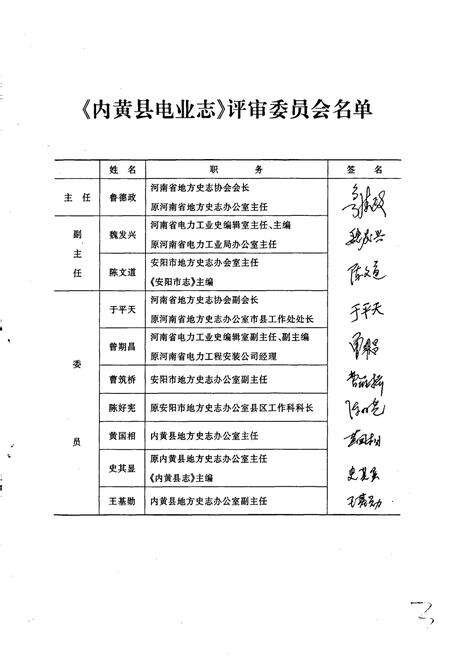 《内黄县电业志》评审委员会名单
姓 名 职 务 签 名
主 任 鲁德政 河南省地方史志协会会长
原河南省地方史志办公室主任
副主任 魏发兴 河南省电力工业史编辑室主任、主编
原河南省电力工业局办公室主任
魏发兴
陈文道 安阳市地方史志办会室主任
《安阳市志》主编
陈文道
委员 于平天 河南省地方史志协会副会长
原河南省地方史志办公室市县工作处处长
于平天
曾期昌 河南省电力工业史编辑室副主任、副主编
原河南省电力工程安装公司经理
曹筑桥 安阳市地方史志办公室副主任
陈好宪 原安阳市地方史志办公室县区工作科科长
黄国相 内黄县地方史志办公室主任
黄国相
史其显 原内黄县地方史志办公室主任
《内黄县志》主编
史其显
王基勋 内黄县地方史志办公室副主任
王基勋